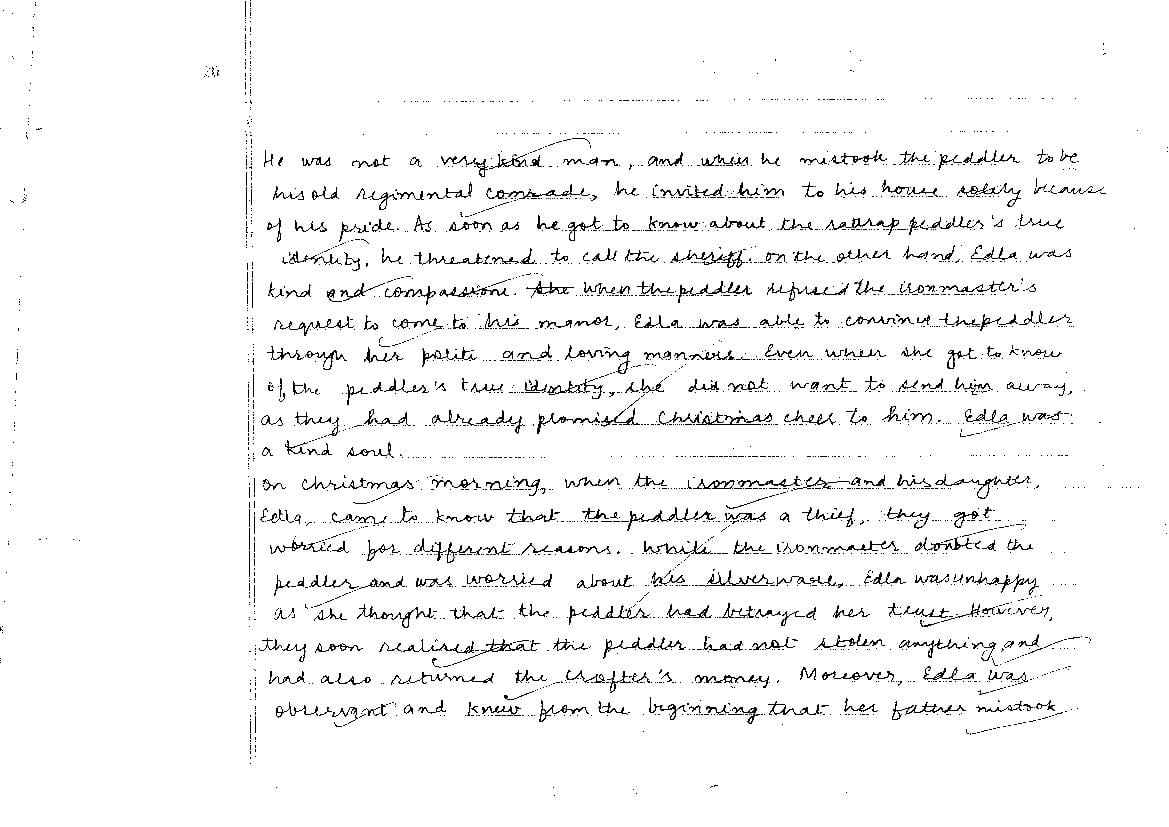 20
He was not a very kind man, and when he mistook the peddler to be
his old regimental comrade, he invited him to his house solely because
of his pride. As soon as he got to know about the rattrap peddler's true
identity, he threatened to call the sheriff. On the other hand, Edla was
kind and compassione. She when the peddler refused the ironmaster's
request to come to his manor, Edla was able to convince the peddler
through her polite and loving manners. Even when she got to know
of the peddler's true identity, she did not want to send him away,
as they had already promised Christmas cheer to him. Edla was
a kind soul.
On christmas morning, when the ironmaster and his daughter,
Edla, came to know that the peddler was a thief, they got
worried for different reasons. While the ironmaster doubted the
peddler and was worried about his silverware, Edla was unhappy
as she thought that the peddler had betrayed her trust. However,
they soon realised that the peddler had not stolen anything and
had also returned the crofter's money. Moreover, Edla was
observant and knew from the beginning that her father mistook